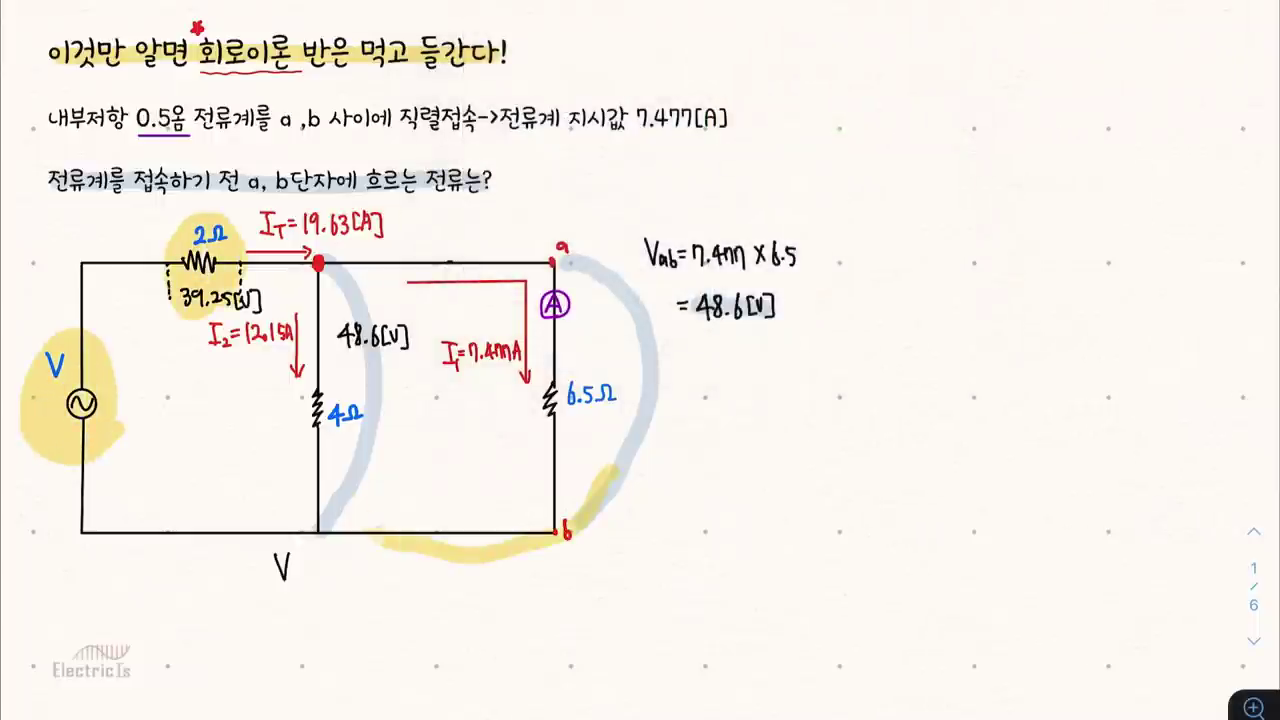 이것만 알면 회로이론 반은 먹고 들간다!
내부저항 0.5옴 전류계를 a ,b 사이에 직렬접속->전류계 지시값 7.477[A]
전류계를 접속하기 전 a, b단자에 흐르는 전류는?
2Ω
I_T=19.63[A]
39.25[V]
I_2=12.15A
48.6[V]
I_1=7.477A
a
A
V_ab=7.477×6.5
=48.6[V]
V
4Ω
6.5Ω
b
V
Electric Is
1
/
6